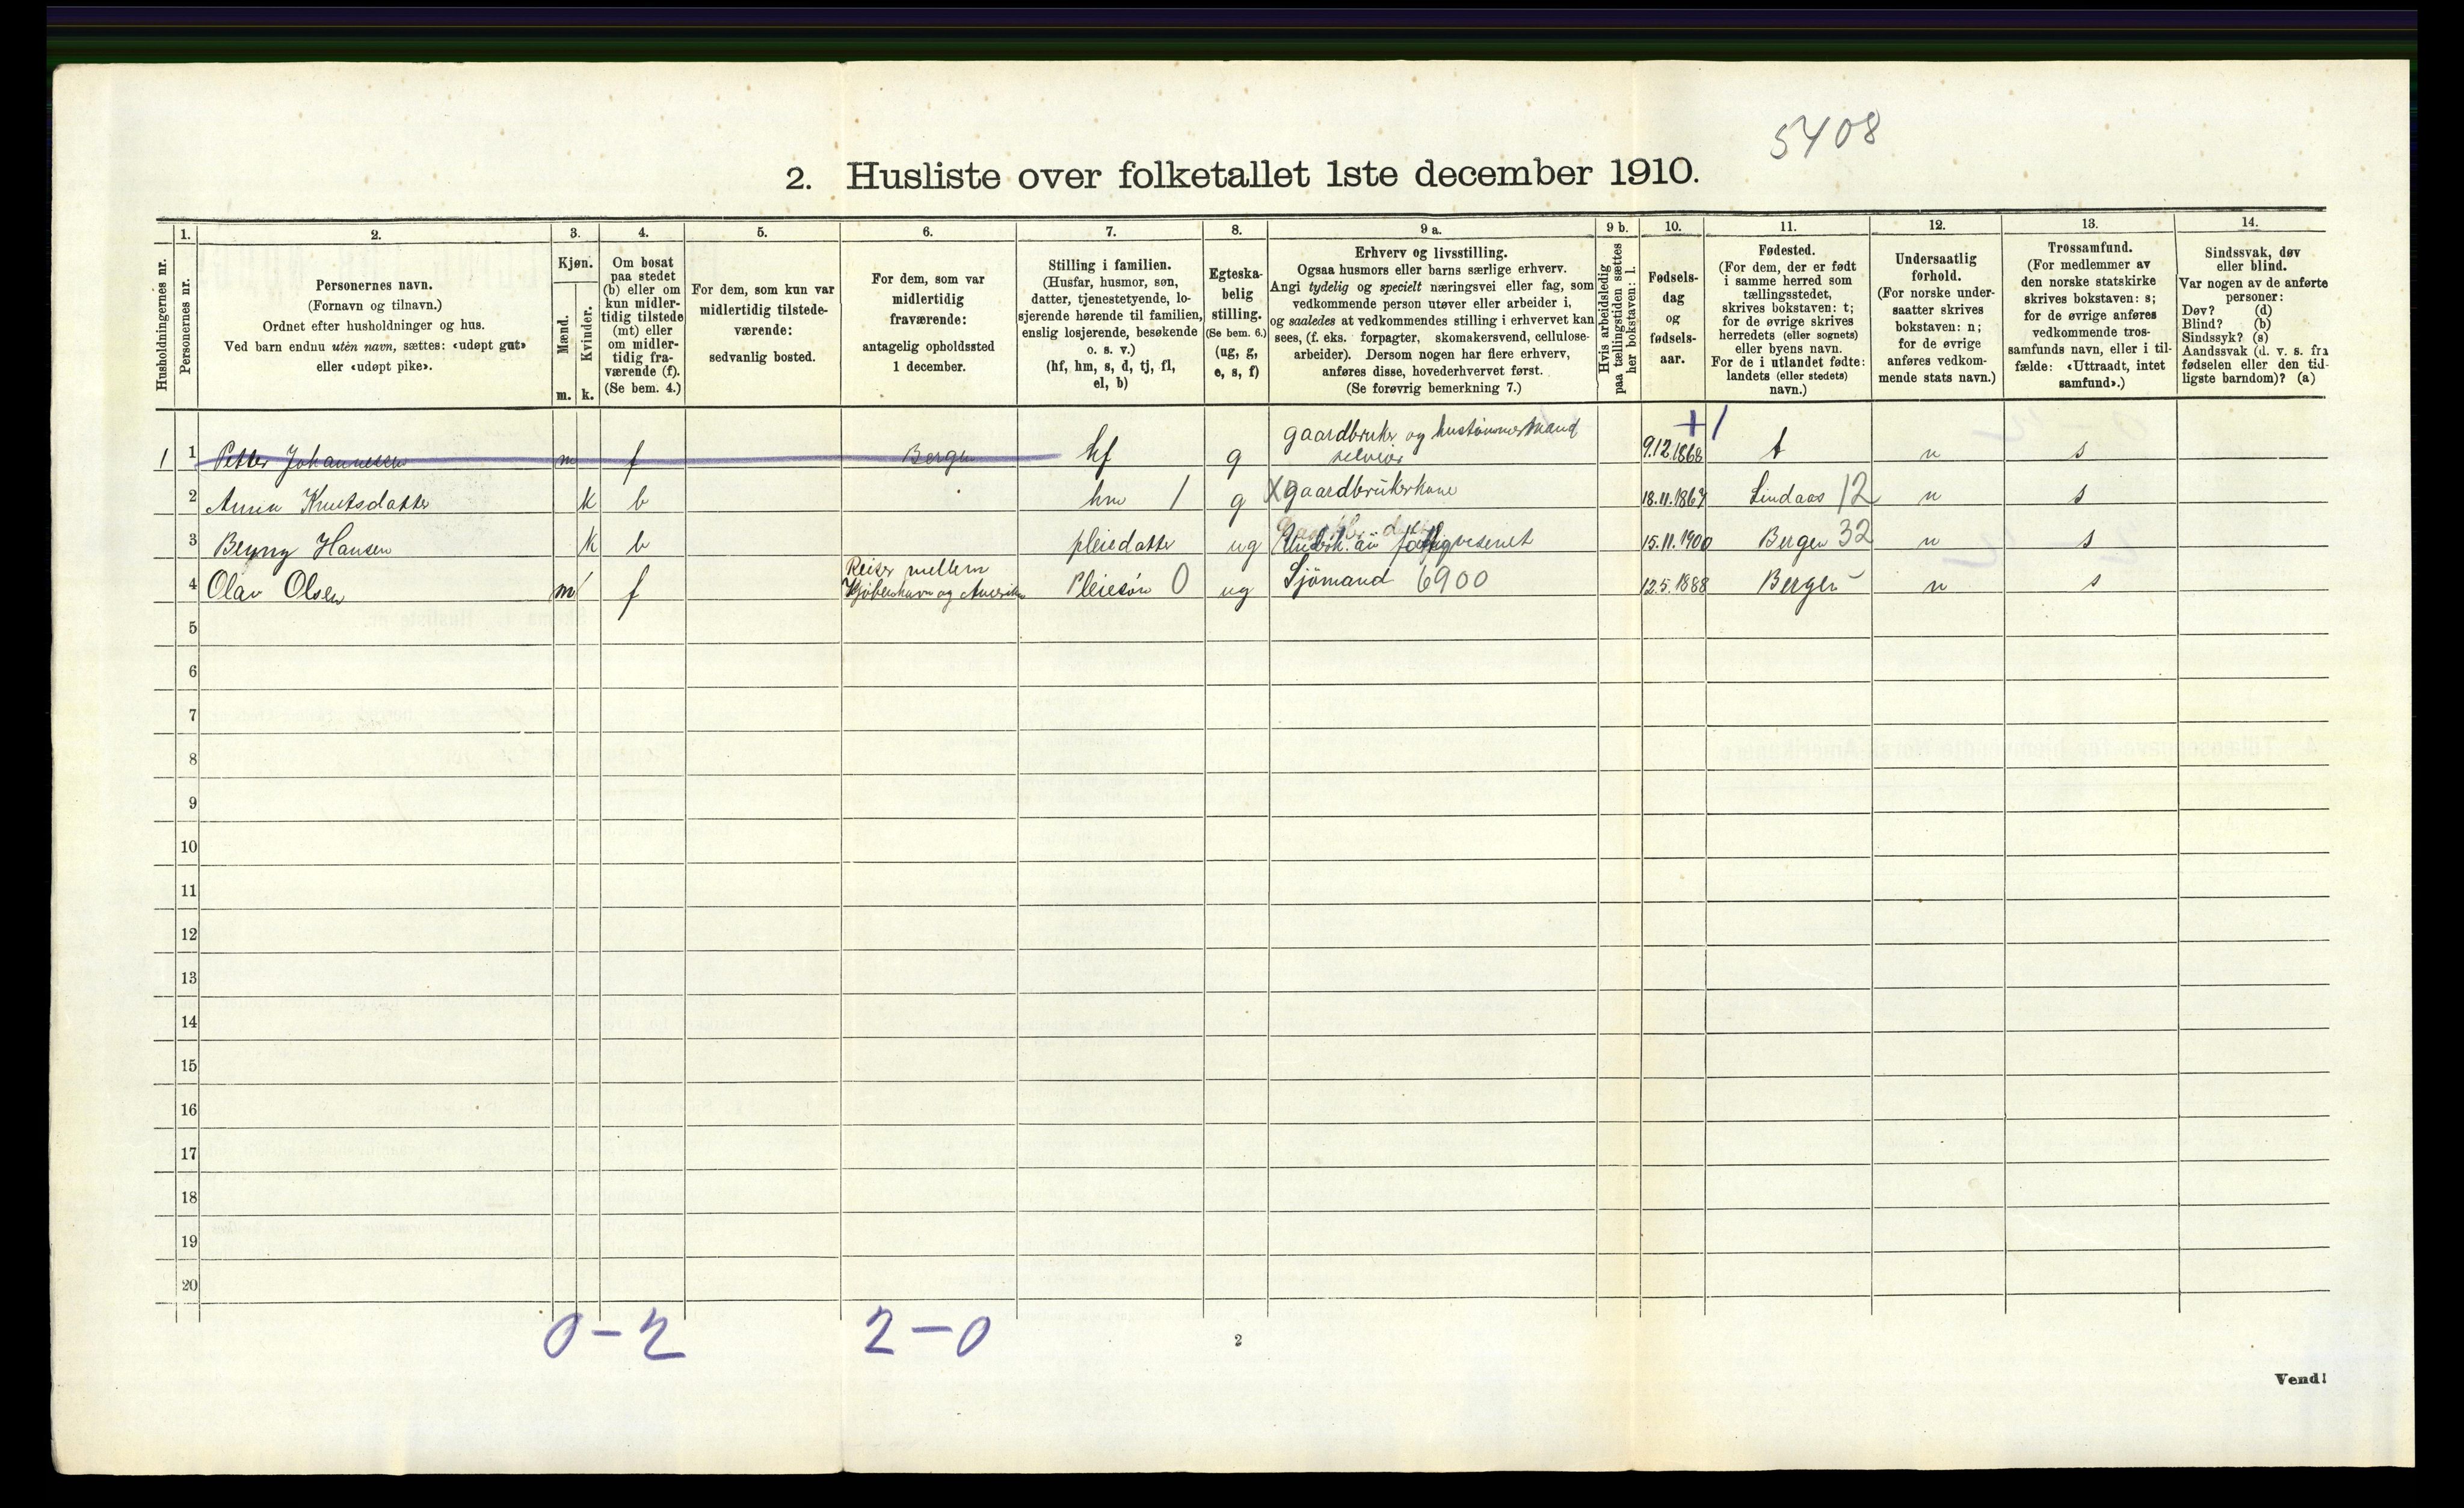 5408
2. Husliste over folketallet 1ste december 1910.
Husholdningernes nr.
1.
Personernes nr.
2.
Personernes navn.
(Fornavn og tilnavn.)
Ordnet efter husholdninger og hus.
Ved barn endnu uten navn, sættes: «udøpt gut»
eller «udøpt pike».
3.
Kjøn.
Mænd.
Kvinder.
m. k.
4.
Om bosat
paa stedet
(b) eller om
kun midler-
tidig tilstede
(mt) eller
om midler-
tidig fra-
værende (f).
(Se bem. 4.)
5.
For dem, som kun var
midlertidig tilstede-
værende:
sedvanlig bosted.
6.
For dem, som var
midlertidig
fraværende:
antagelig opholdssted
1 december.
7.
Stilling i familien.
(Husfar, husmor, søn,
datter, tjenestetyende, lo-
sjerende hørende til familien,
enslig losjerende, besøkende
o. s. v.)
(hf, hm, s, d, tj, fl,
el, b)
8.
Egteska-
belig
stilling.
(Se bem. 6.)
(ug, g,
e, s, f)
9 a.
Erhverv og livsstilling.
Ogsaa husmors eller barns særlige erhverv.
Angi tydelig og specielt næringsvei eller fag, som
vedkommende person utøver eller arbeider i,
og saaledes at vedkommendes stilling i erhvervet kan
sees, (f. eks. forpagter, skomakersvend, cellulose-
arbeider). Dersom nogen har flere erhverv,
anføres disse, hovederhvervet først.
(Se forøvrig bemerkning 7.)
9 b.
Hvis arbeidsledig
paa tællingstiden sættes
her bokstaven: l.
10.
Fødsels-
dag
og
fødsels-
aar.
11.
Fødested.
(For dem, der er født
i samme herred som
tællingsstedet,
skrives bokstaven: t;
for de øvrige skrives
herredets (eller sognets)
eller byens navn.
For de i utlandet fødte:
landets (eller stedets)
navn.)
12.
Undersaatlig
forhold.
(For norske under-
saatter skrives
bokstaven: n;
for de øvrige
anføres vedkom-
mende stats navn.)
13.
Trossamfund.
(For medlemmer av
den norske statskirke
skrives bokstaven: s;
for de øvrige anføres
vedkommende tros-
samfunds navn, eller i til-
fælde: «Uttraadt, intet
samfund».)
14.
Sindssvak, døv
eller blind.
Var nogen av de anførte
personer:
Døv? (d)
Blind? (b)
Sindssyk? (s)
Aandssvak (d. v. s. fra
fødselen eller den tid-
ligste barndom)? (a)
1 1 Petter Johannesen m f Bergen hf g gaardbruker og hustømmermand selveier 9.12.1868 t n s
2 Anna Knutsdatter k b hm 1 g X gaardbrukerkone 18.11.1867 Lindaas 12 n s
3 Hansen k b pleiedatter ug 15.11.1900 Bergen 32 n s
4 Olav Olsen m f Reiser mellem Kjøbenhavn og Amerika Pleiesøn 0 ug Sjömand 6900 12.5.1888 Bergen n s
5
6
7
8
9
10
11
12
13
14
15
16
17
18
19
20
0-2 2-0
2
Vend!